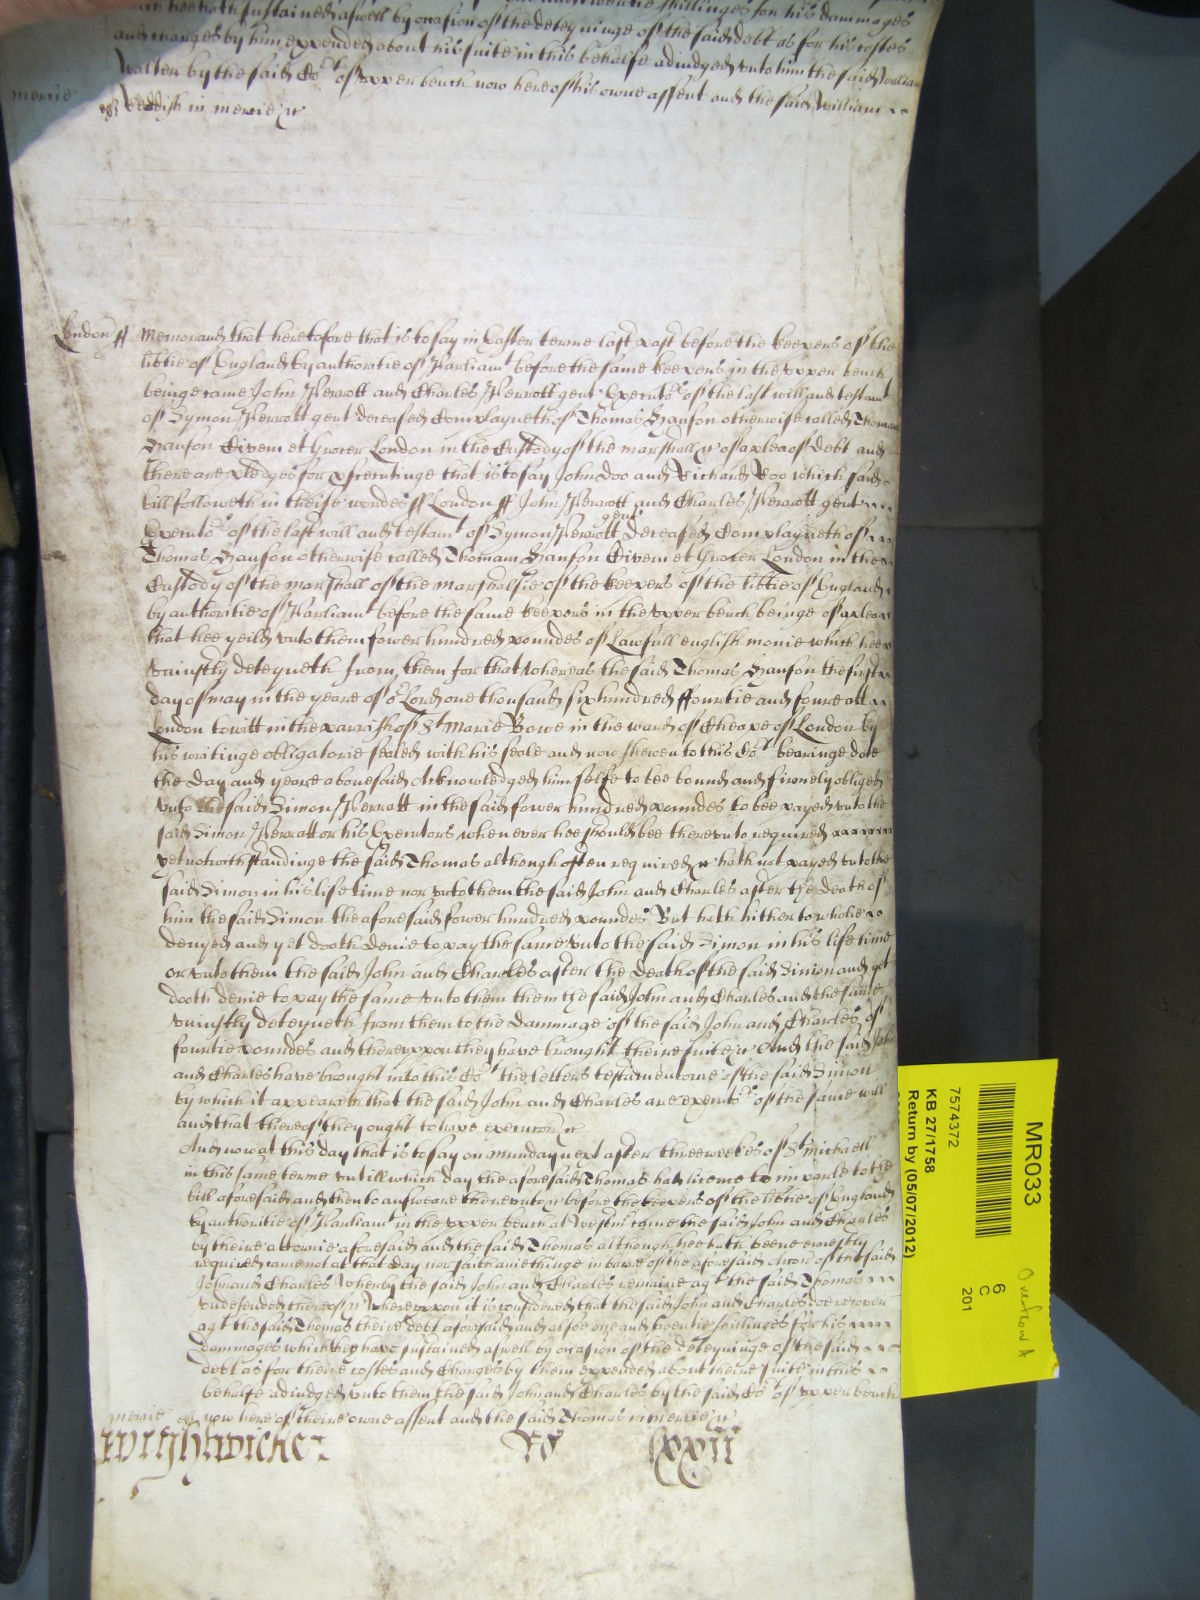 which hee hath sustained aswell by occasion of the deteyninge of the said debt as for his costes
and charges by him expended about his suite in this behalfe adiudged unto him the said William
Walter by the said Cort of upper bench now here of his owne assent and the said William
merie
Reddish in mercie &c
London ss Memorand that heretofore that is to say in Easter terme last past before the keepers of the
libtie of England by authoritie of Parliamt before the same keepers in the upper bench
beinge came John Perrott and Charles Perrott gent Executors of the last will and testamt
of Symon Perrott gent deceased Complayneth of Thomas Hanson otherwise called Thomam
Hanson Civem et Grocer London in the Custody of the marshall &c of a plea of debt and
there are pledges for prosecutinge that is to say John Doo and Richard Roo which said
bill followeth in theise wordes ss London ss John Perrott and Charles Perrott gent
Executors of the last will and testamt of Symon Perrott gent deceased Complayneth of
Thomas Hanson otherwise called Thomam Hanson Civem et Grocer London in the
Custody of the marshall of the marshalsie of the keepers of the libtie of England
by authoritie of Parliamt before the same keepers in the upper bench beinge of a plea
that hee yeild unto them fower hundred poundes of Lawfull english monie which hee
uniustly deteyneth from them for that Whereas the said Thomas Hanson the first
day of may in the yeare of or Lord one thousand six hundred ffourtie and foure att
London to witt in the parrish of St Marie Bowe in the ward of Cheape of London by
his writinge obligatorie sealed with his seale and now shewen to this Cort bearinge date
the day and yeare abovesaid Acknowledged him selfe to bee bound and firmely obliged
unto the said Simon Perrott in the said fower hundred poundes to bee payed unto the
said Simon Perrott or his Executors when ever hee should bee thereunto required
yet notwithstandinge the said Thomas although often required &c hath not payed unto the
said Simon in his life time nor unto them the said John and Charles after the death of
him the said Simon the aforesaid fower hundred poundes But hath hitherto wholie
denyed and yet dooth denie to pay the same unto the said Simon in his life time
or unto them the said John and Charles after the death of the said Simon and yet
dooth denie to pay the same unto them them the said John and Charles and the same
uniustly deteyneth from them to the dammage of the said John and Charles of
fourtie poundes and thereuppon they have brought theire suite &c And the said John
and Charles have brought into this Cort the letters testamentorie of the said Simon
by which it appeareth that the said John and Charles are executors of the same will
and that thereof they ought to have execucon &c
And now at this day that is to say on munday next after three weekes of St Michaell
in this same terme untill which day the aforesaid Thomas had licence to imparle to the
bill aforesaid and then to answeare thereunto &c before the keepers of the libtie of England
by authoritie of Parliamt in the upper bench at Westmr came the said John and Charles
by theire attornie aforesaid and the said Thomas although hee hath beene earnestly
required came not at that day nor saith aniethinge in barre of the aforesaid accon of the said
John and Charles Whereby the said John and Charles remaine agt the said Thomas
undefended thereof &c Whereuppon it is considered that the said John and Charles doe recover
agt the said Thomas theire debt aforesaid and alsoe one and twentie shillinges for his
dammages which they have sustained aswell by occasion of the deteyninge of the said
debt as for theire costes and Charges by them expended about theire suite in this
behalfe adiudged unto them the said John and Charles by the said Cort of upper bench
merie now here of theire owne assent and the said Thomas in mercie &c
Wightwicke
Ro
lxxii
MR033
7574372
KB 27/1758
Return by (05/07/2012)
6
C
201
Overflow A